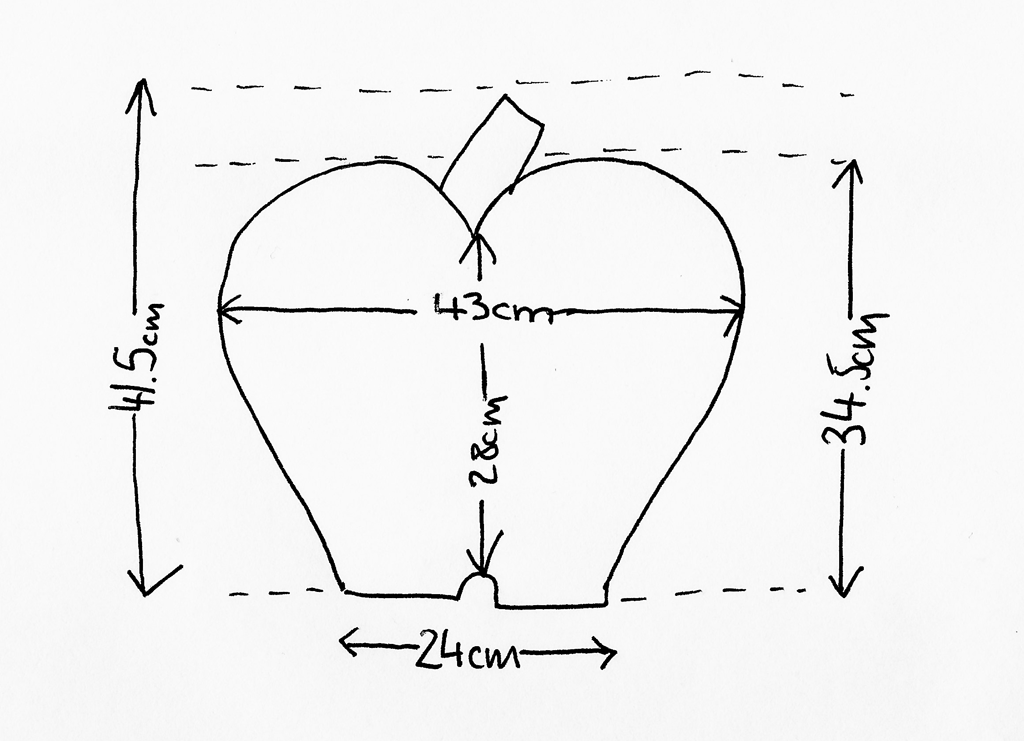 41.5cm
43cm
28cm
34.5cm
24cm